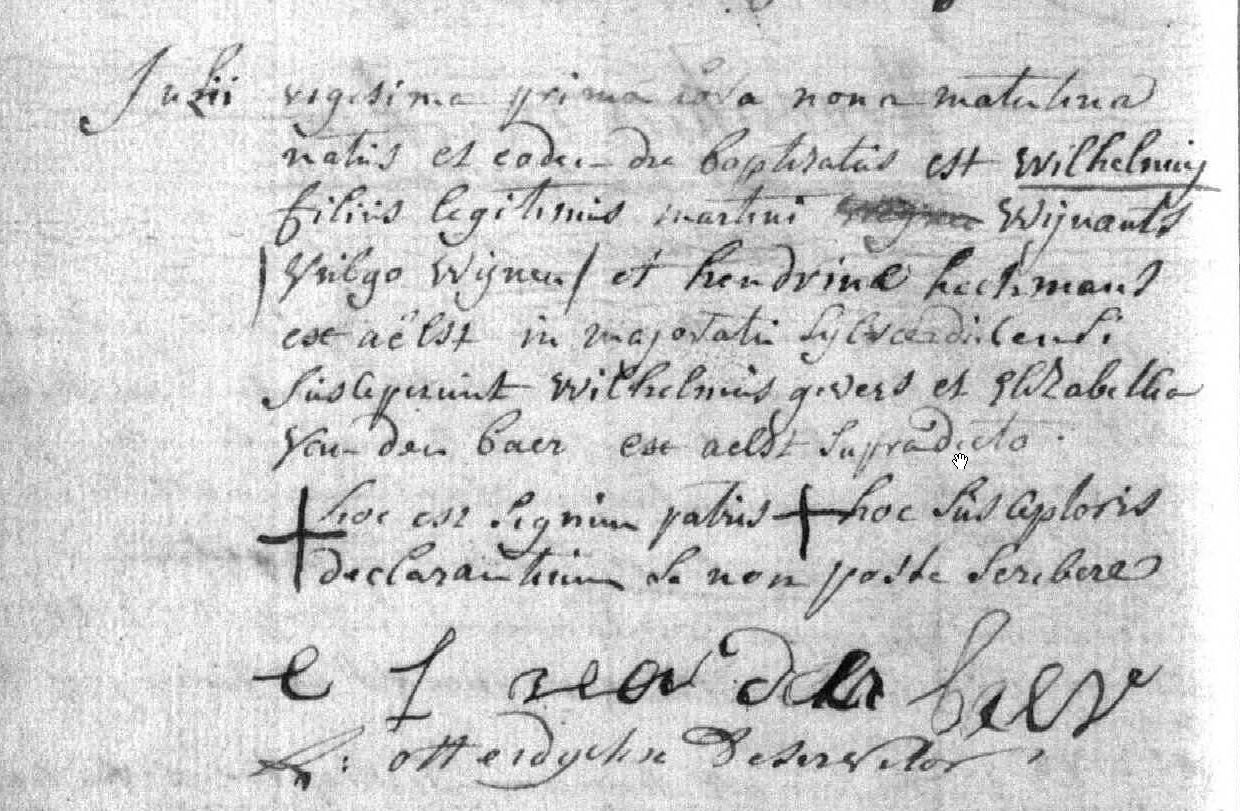 Julii vigesima prima hora nona matutina
natus et eodem die baptisatus est Wilhelmus
filius legitimus martini Wijnants
/ Vulgo Wijnen / et hendrinæ heckmans
ex aëlst in majoratu Sylvæducensi
Susceperunt Wilhelmus gevers et Elizabetha
Van den baer ex aelst Supradicto.
hoc est Signum patris + hoc Susceptoris
+ declarantium Se non posse Scribere
e f van den baer
ottendyckx Deservitor